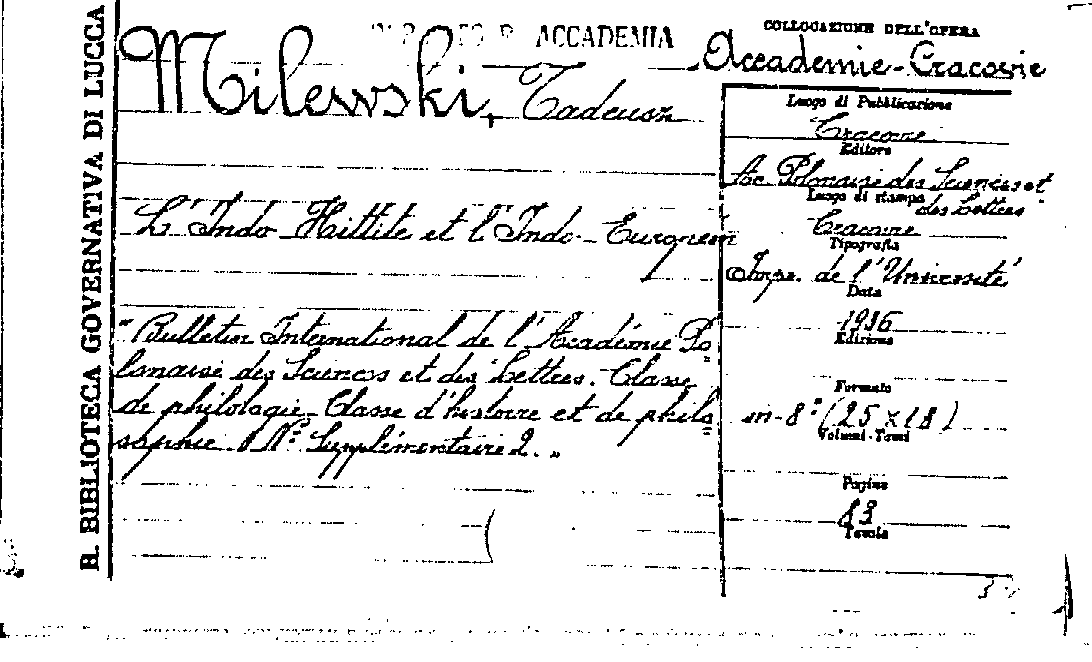 R. BIBLIOTECA GOVERNATIVA DI LUCCA
ACCADEMIA
Milewski, Tadeusz
L'Indo Hittite et l'Indo-Européen
"Bulletin International de l'Académie Po=
lonaise des Sciences et des Lettres. Classe
de philologie - Classe d'histoire et de philo=
sophie N.º Supplémentaire 2."
COLLOCAZIONE DELL'OPERA
Accademie-Cracovie
Luogo di Pubblicazione
Cracovie
Editore
Ac. Polonaise des Sciences et
des Lettres
Luogo di stampa
Cracovie
Tipografia
Imp. de l'Université
Data
1936
Edizione
Formato
in-8º (25 x 18)
Volumi-Tomi
Pagine
Tavole